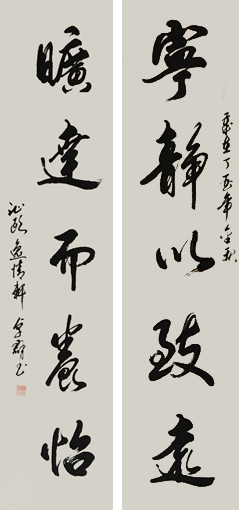 寧靜以致遠
歲在丁酉年金秋
曠達而養怡
逸情軒